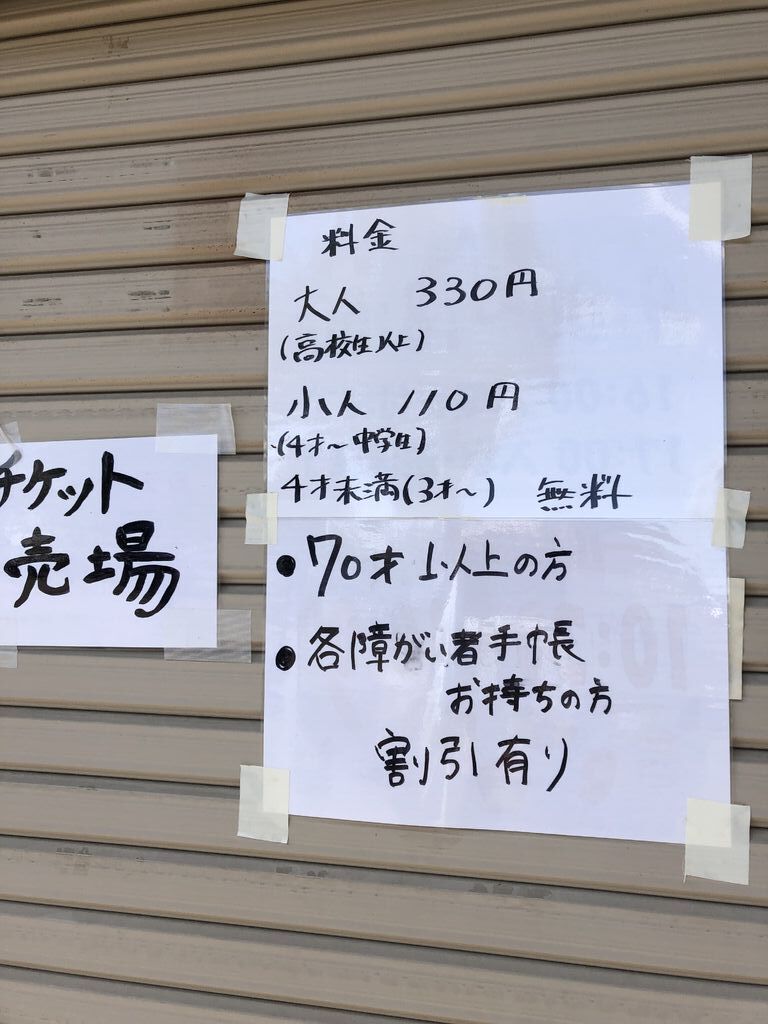 チケット
売場
料金
大人 330円
(高校生以上)
小人 110円
(4才～中学生)
4才未満(3才～) 無料
●70才以上の方
●各障がい者手帳
お持ちの方
割引有り